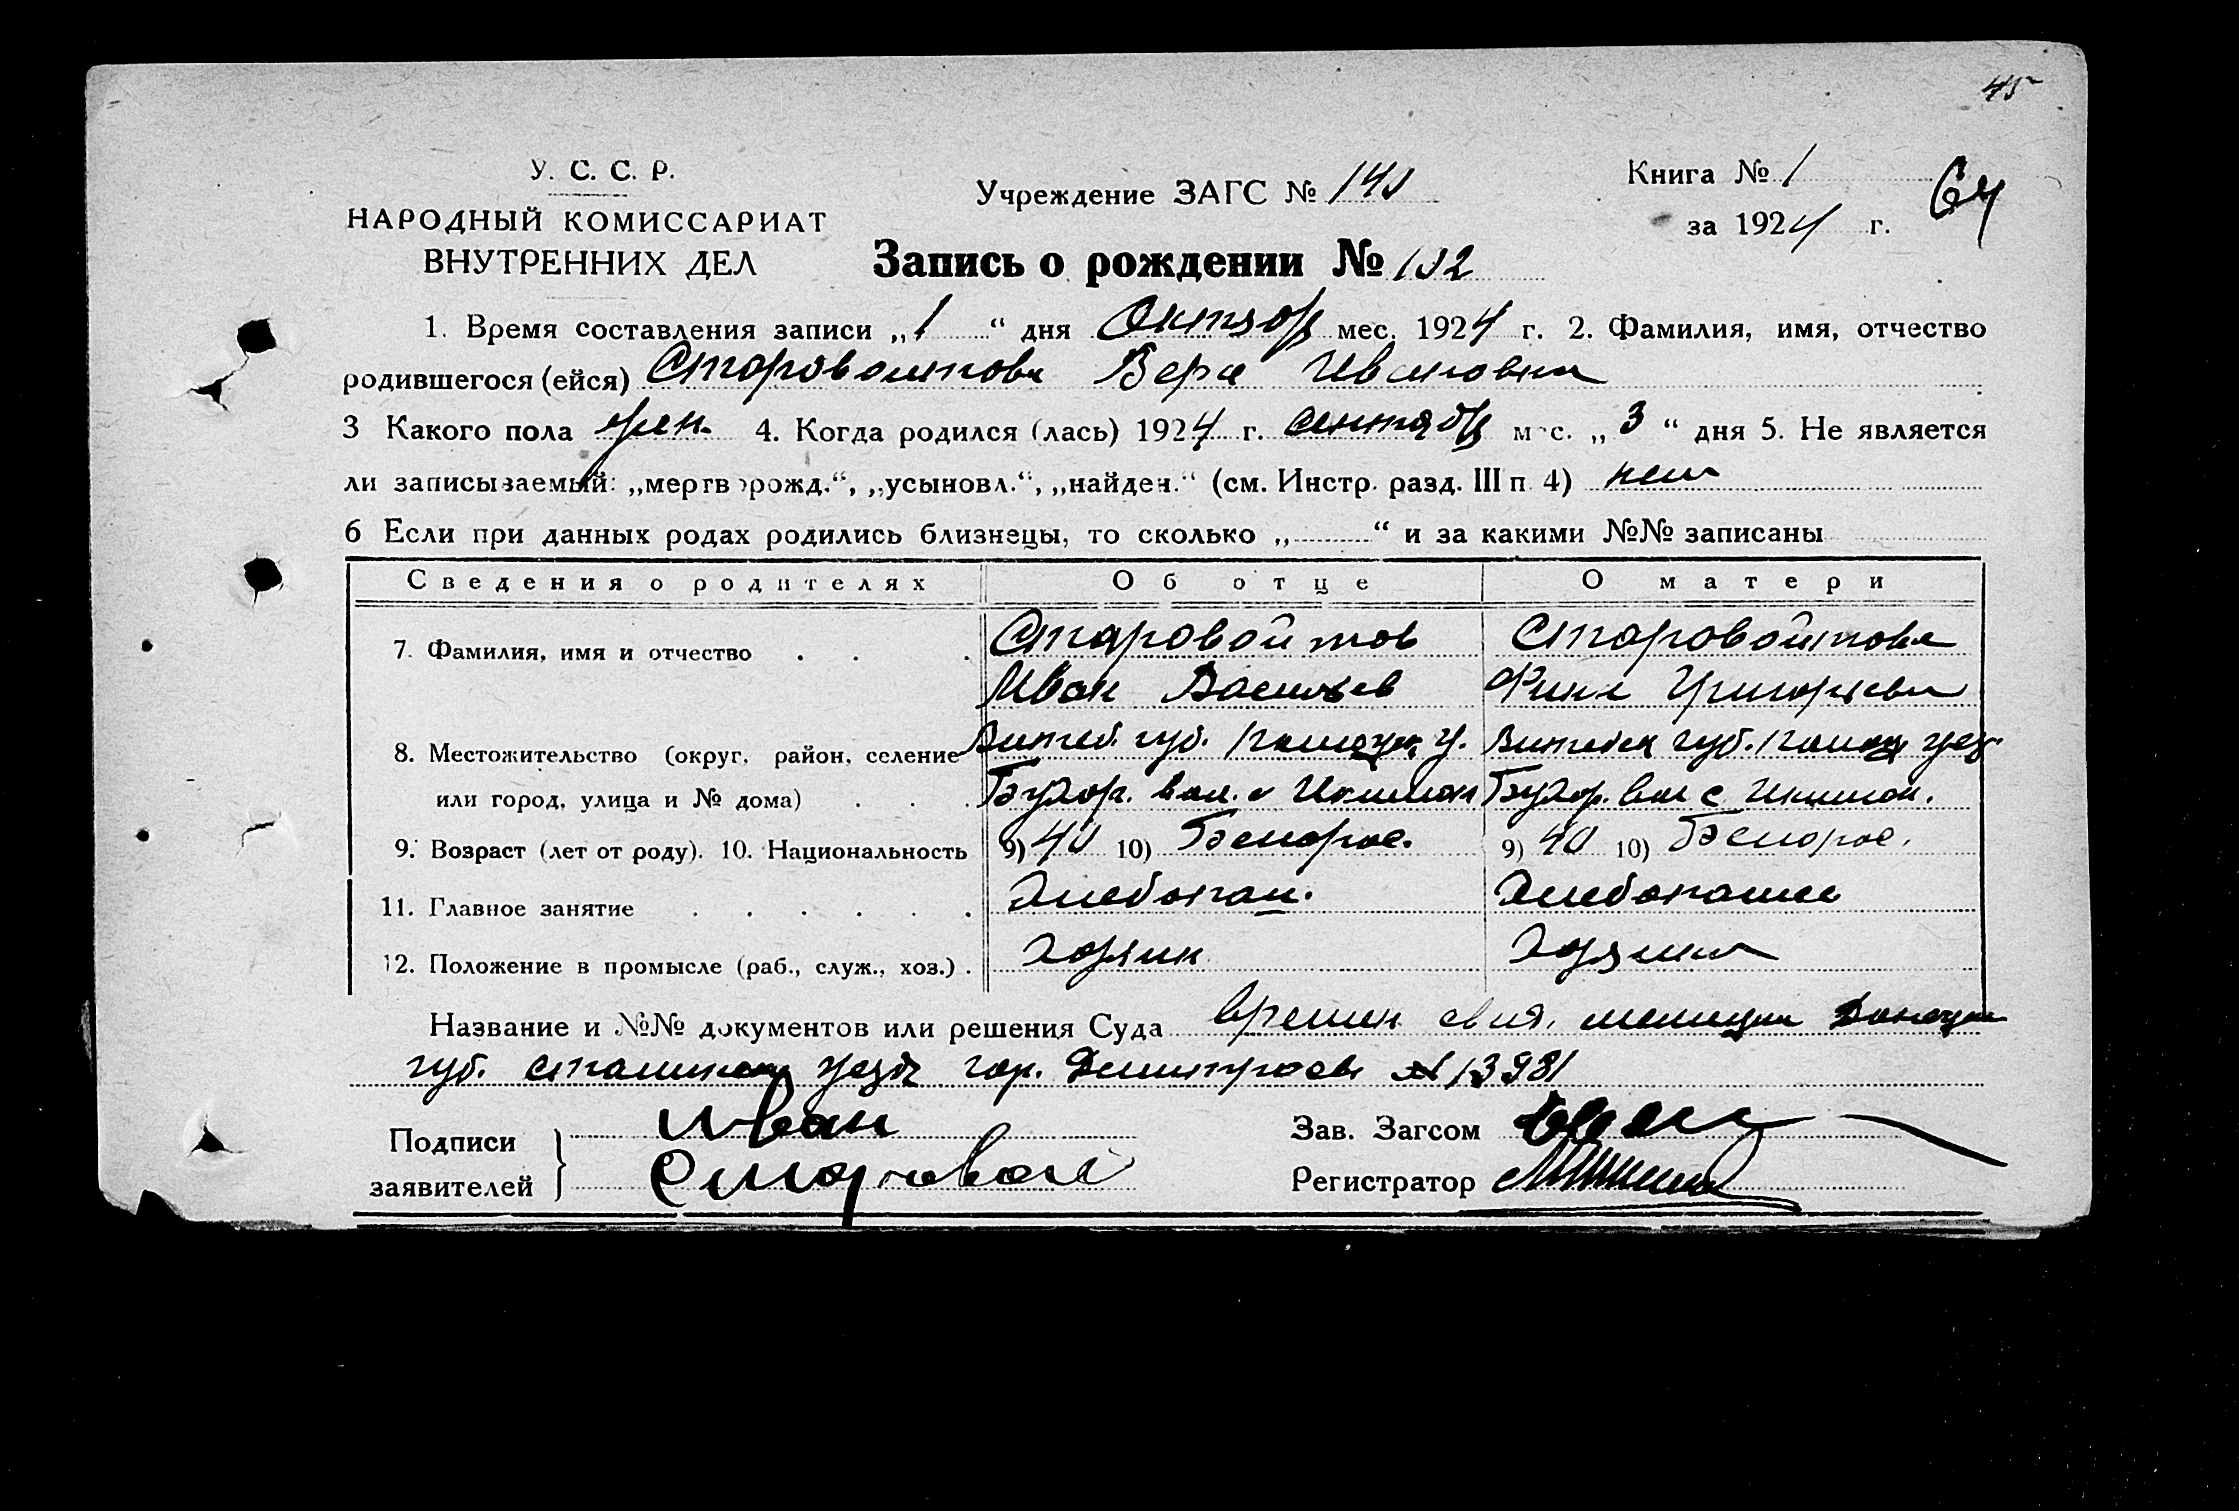 45
У. С. С. Р.
НАРОДНЫЙ КОМИССАРИАТ
ВНУТРЕННИХ ДЕЛ
Учреждение ЗАГС № 140
Книга № 1
64
за 1924 г.
Запись о рождении № 102
1. Время составления записи „1“ дня Октяор мес. 1924 г. 2. Фамилия, имя, отчество
родившегося (ейся) Старовоитова Вера Ивановна
3 Какого пола жен. 4. Когда родился (лась) 1924 г. сентябр мес. „3“ дня 5. Не является
ли записываемый: „мертворожд.“, „усыновл.“, „найден.“ (см. Инстр. разд. III п. 4) нет
6 Если при данных родах родились близнецы, то сколько „..........“ и за какими №№ записаны
Сведения о родителях Об отце О матери
7. Фамилия, имя и отчество . . . Старовойтов Старовойтова
Иван Васильев Григорьевн
8. Местожительство (округ, район, селение Витеб. губ. у. Витебск губ. уез.
или город, улица и № дома) . . вол. вол с
9. Возраст (лет от роду). 10. Национальность 9) 40 10) Белорос. 9) 40 10) Белорос.
11. Главное занятие . . . . . . Хлебопаш. Хлебопашес
12. Положение в промысле (раб., служ., хоз.) . Хозяин Хозяика
Название и №№ документов или решения Суда времен свид. милиции Донецкой
губ. сталинског уезда гор. Дмитриевс № 13981
Подписи Иван Зав. Загсом
заявителей Старовой Регистратор